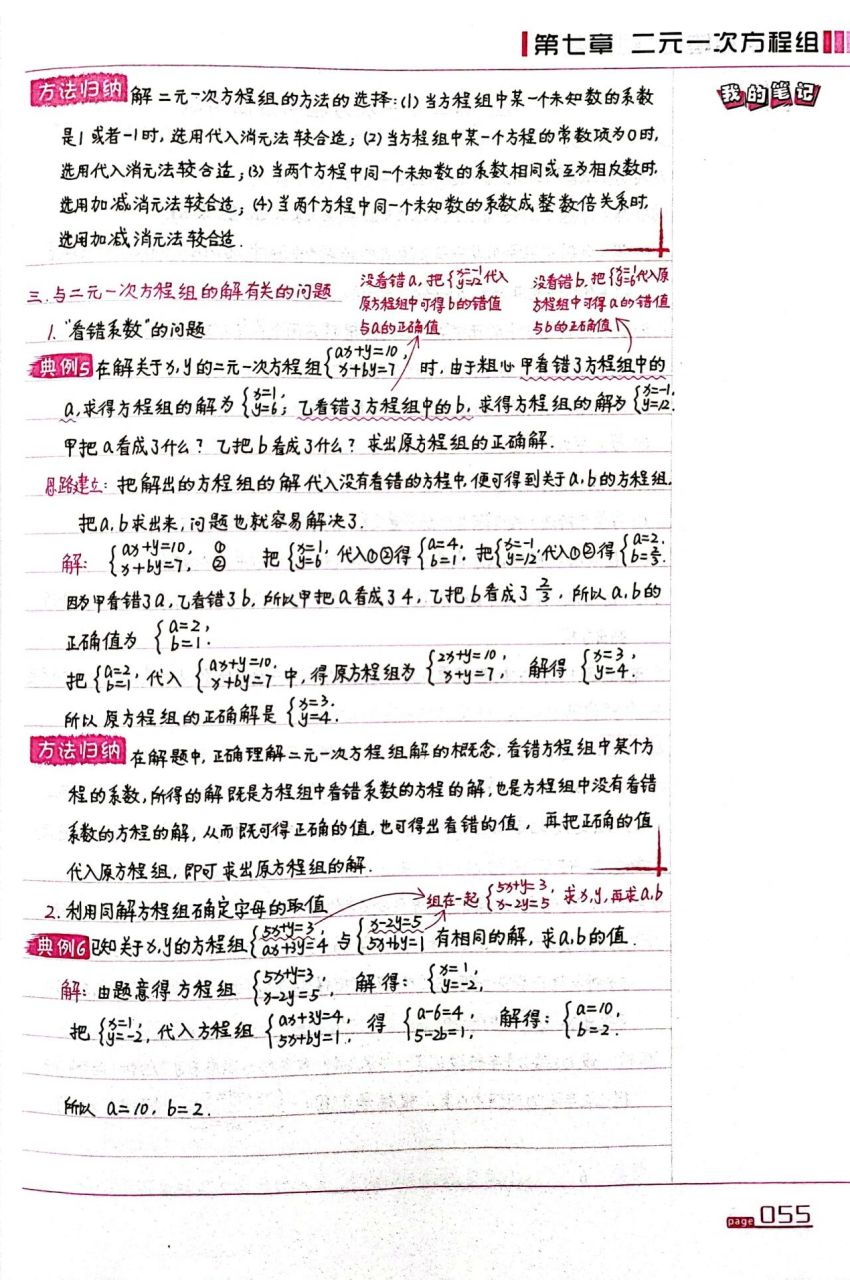 第七章 二元一次方程组
我的笔记
方法归纳 解二元一次方程组的方法的选择:(1)当方程组中某一个未知数的系数
是1或者-1时,选用代入消元法较合适;(2)当方程组中某一个方程的常数项为0时,
选用代入消元法较合适;(3)当两个方程中同一个未知数的系数相同或互为相反数时,
选用加减消元法较合适;(4)当两个方程中同一个未知数的系数成整数倍关系时,
选用加减消元法较合适.
三.与二元一次方程组的解有关的问题
没看错a,把{x=-1 y=12代入
原方程组中可得b的错值
与a的正确值
没看错b,把{x=1 y=6代入原
方程组中可得a的错值
与b的正确值
1.“看错系数”的问题
典例5 在解关于x,y的二元一次方程组{ax+y=10, x+by=7 时,由于粗心甲看错了方程组中的
a,求得方程组的解为{x=1, y=6; 乙看错了方程组中的b,求得方程组的解为{x=-1, y=12.
甲把a看成了什么?乙把b看成了什么?求出原方程组的正确解.
思路建立:把解出的方程组的解代入没有看错的方程中,便可得到关于a,b的方程组.
把a,b求出来,问题也就容易解决了.
解:{ax+y=10, ① x+by=7, ② 把{x=1, y=6 代入①②得{a=4, b=1. 把{x=-1, y=12 代入①②得{a=2, b=2/3.
因为甲看错了a,乙看错了b,所以甲把a看成了4,乙把b看成了2/3,所以a,b的
正确值为{a=2, b=1.
把{a=2, b=1, 代入{ax+y=10, x+by=7 中,得原方程组为{2x+y=10, x+y=7, 解得{x=3, y=4.
所以原方程组的正确解是{x=3, y=4.
方法归纳 在解题中,正确理解二元一次方程组解的概念,看错方程组中某个方
程的系数,所得的解既是方程组中看错系数的方程的解,也是方程组中没有看错
系数的方程的解,从而既可得正确的值,也可得出看错的值,再把正确的值
代入原方程组,即可求出原方程组的解.
组在一起{5x+y=3, x-2y=5 求x,y,再求a,b
2.利用同解方程组确定字母的取值
典例6 已知关于x,y的方程组{5x+y=3, ax+3y=4 与{x-2y=5 5x+by=1 有相同的解,求a,b的值.
解:由题意得方程组{5x+y=3, x-2y=5, 解得:{x=1, y=-2,
把{x=1, y=-2,代入方程组{ax+3y=4, 5x+by=1, 得{a-6=4, 5-2b=1, 解得:{a=10, b=2.
所以 a=10,b=2.
page 055